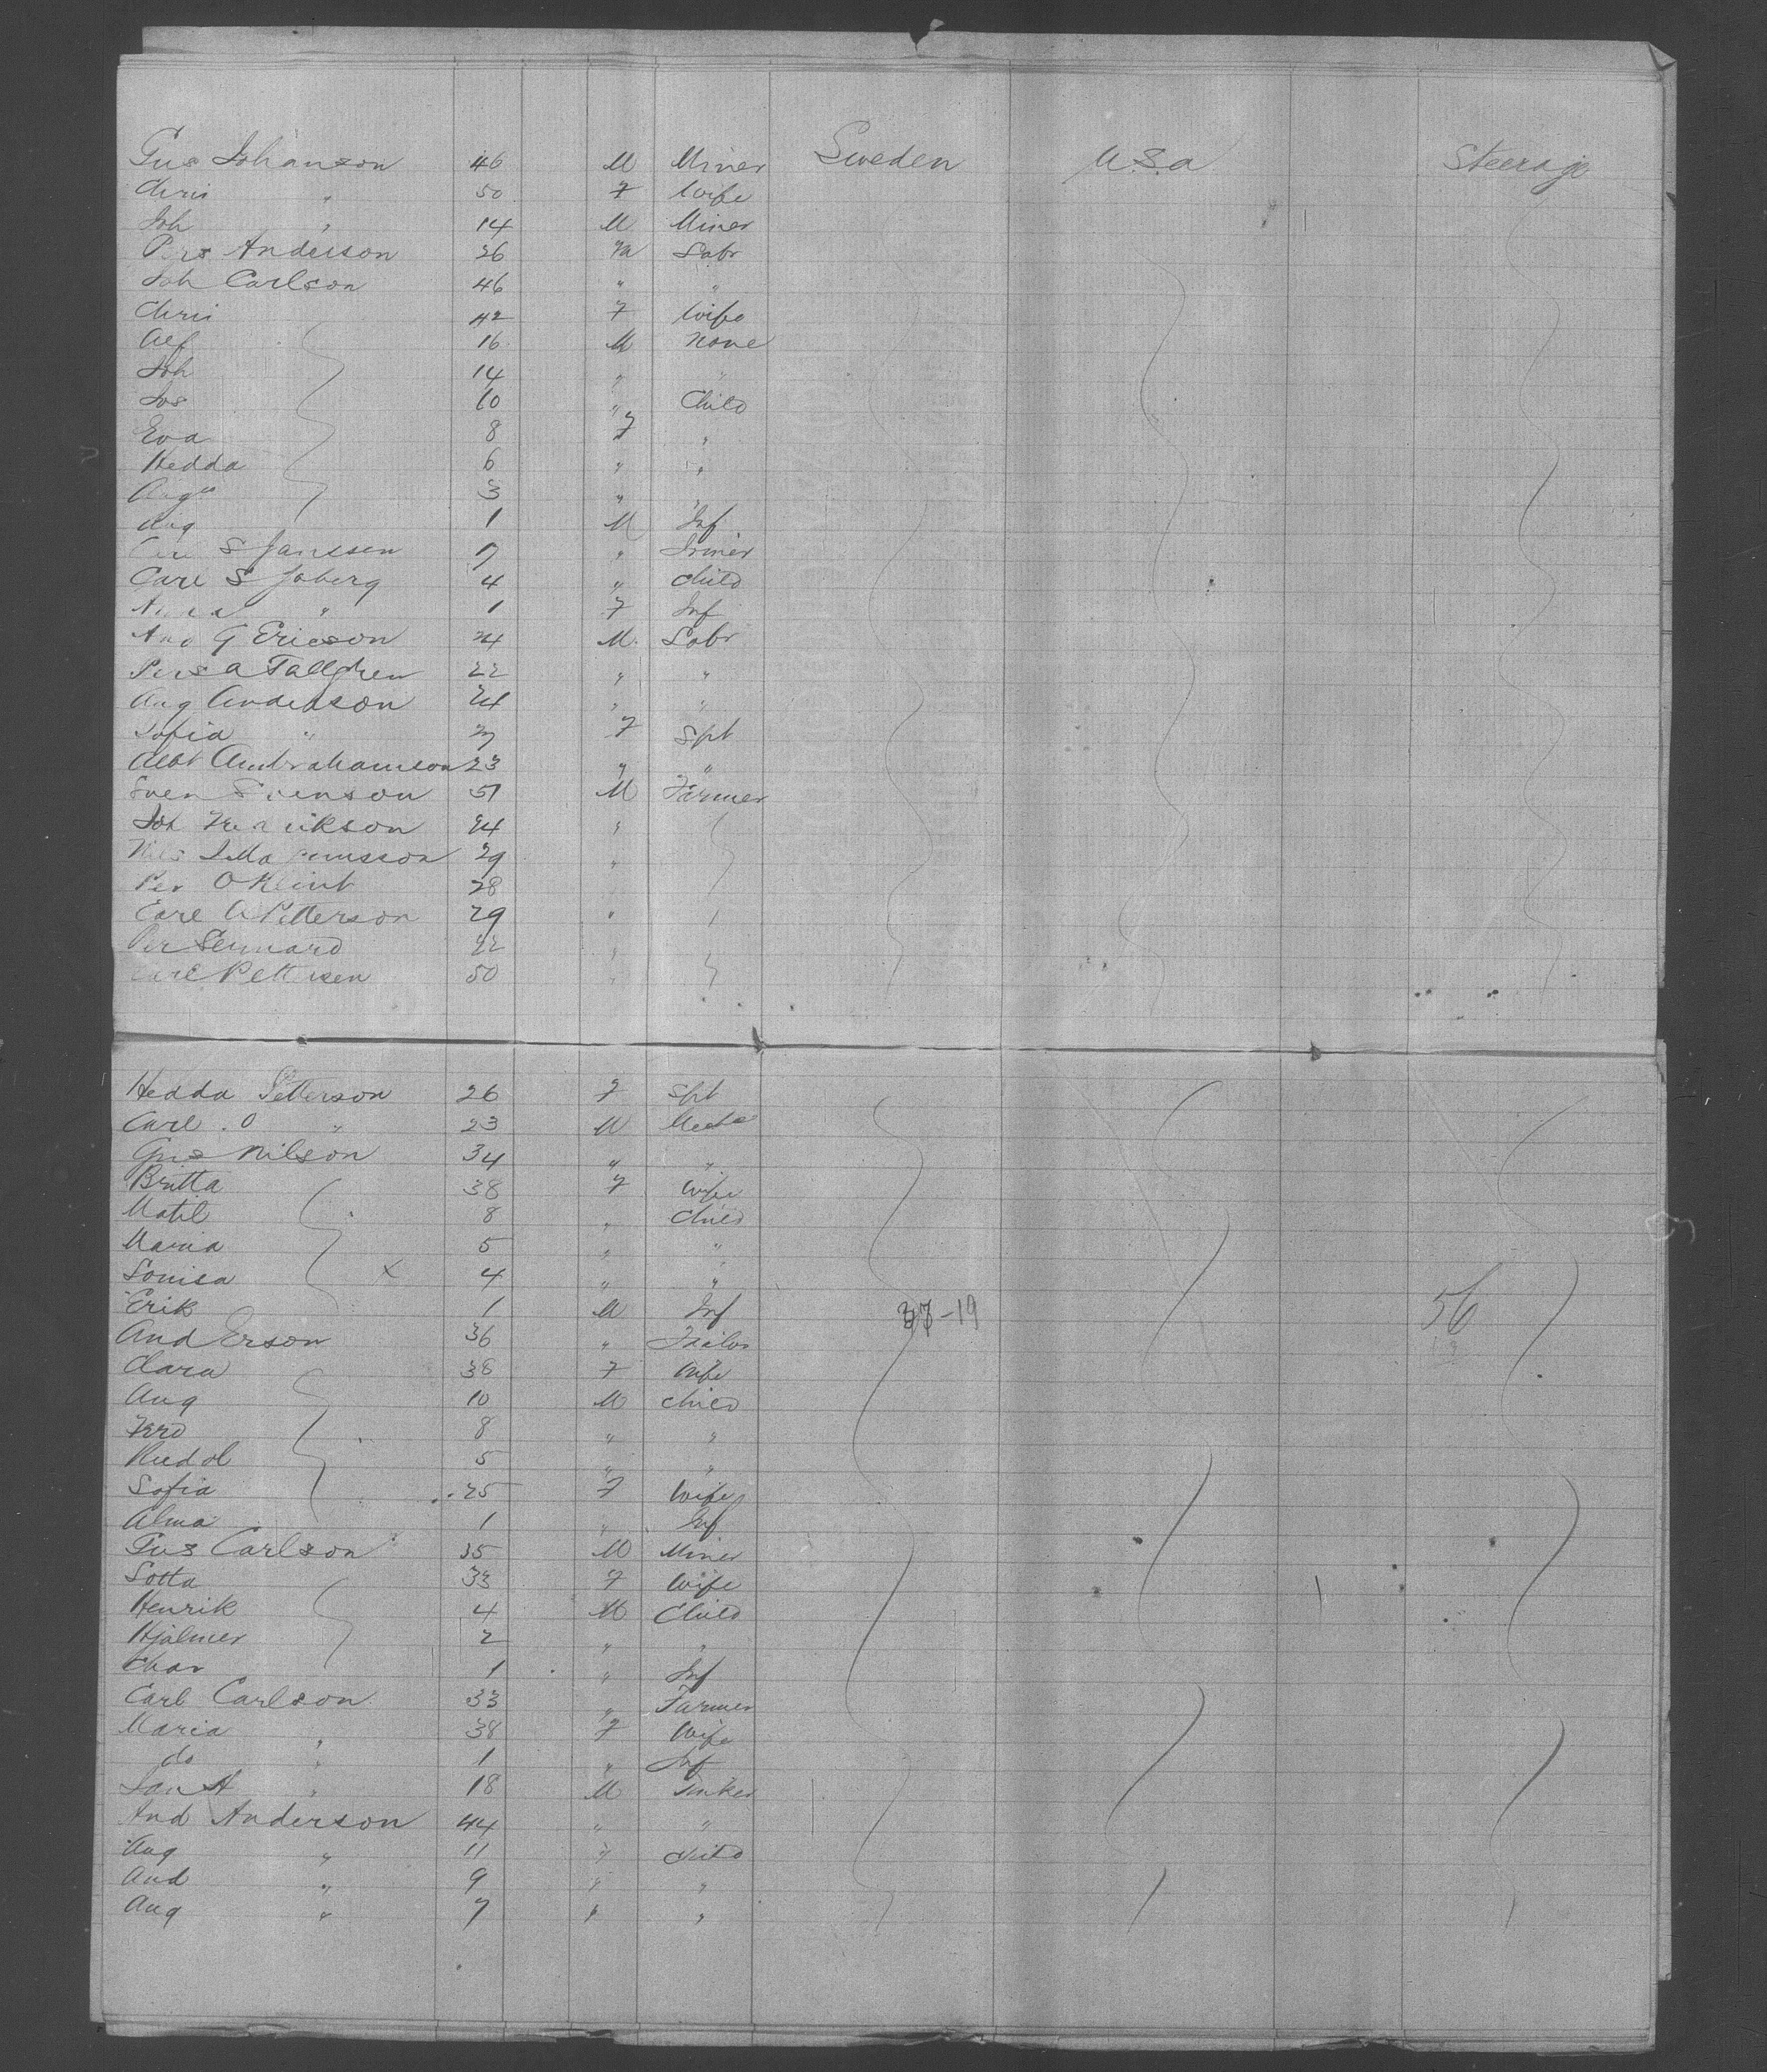 Gus Johanson 46 M Miner Sweden U.S.a Steerage
Chris " 50 F Wife
Joh " 14 M Miner
Pers Anderson 26 M Labr
Joh Carlson 46 " "
Chris 42 F Wife
Alf 16 M None
Joh 14 " "
Jos 10 " Child
Eva 8 F "
Hedda 6 " "
Augta 3 " "
Aug 1 M Inf
S Janssen 7 "
Carl S Joberg 4 " Child
" 1 F Inf
And G Ericson 24 M. Labr
Pers a Fallgren 22 " "
Aug Anderson 24 " "
Sofia " F Spt
Albt Ambrahamson 23 " "
Sven Svenson 51 M Farmer
Joh Fredrikson 24 "
29 "
Per O Klint 28
Carl A Petterson 29 "
Per Lennard 22 "
Carl Pettersen 50 "
Hedda Petterson 26 F Spt
Carl . O " 23 M
Gus Nilson 34 " "
Britta 38 F Wife
Matil 8 " Child
Maria 5 " "
Louisa x 4 " "
Erik 1 M Inf 37-19 56
And Erson 36 " Tailor
Clara 38 F Wife
Aug 10 M Child
Ferd 8 " "
Rudol 5 " "
Sofia 25 F Wife
Alma 1 " Inf
Gus Carlson 35 M Miner
Lotta 33 F Wife
Henrik 4 M Child
Hjalmer 2 " "
Char 1 " Inf
Carl Carlson 33 " Farmer
Maria " 38 F Wife
do " 1 " Inf
" 18 M
And Anderson 44 " "
Aug " 11 " Child
And " 9 " "
Aug " 7 " "